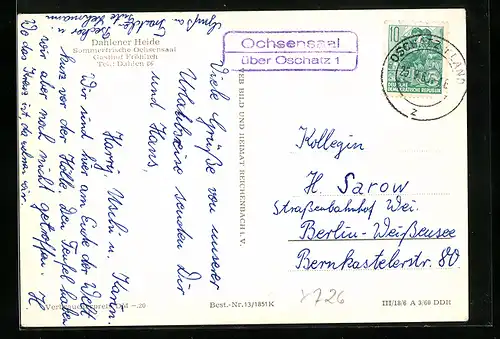 Dahlener Heide
Sommerfrische Ochsensaal
Gasthof Fröhlich
Tel.: Dahlen 66
Ochsensaal
über Oschatz 1
10
DEUTSCHE DEMOKRATISCHE REPUBLIK
OSCHATZ LAND
2
Viele Grüße von unserer
Urlaubsreise senden Dir
und Hans,
Harry, Uschi u. Karin.
Wir sind hier am Ende der Welt
kurz vor der Hölle. Den Teufel haben
wir aber noch nicht getroffen. H.
Wo das Kreuz ist, da wohnen wir.
Gruß a.
VEB BILD UND HEIMAT REICHENBACH i. V.
Kollegin
H. Sarow
Straßenbahnhof Wei.
Berlin-Weißensee
Bernkastelerstr. 80
Verbraucherpreis DM -.20
Best.-Nr. 13/1851 K
III/18/6 A 3/60 DDR